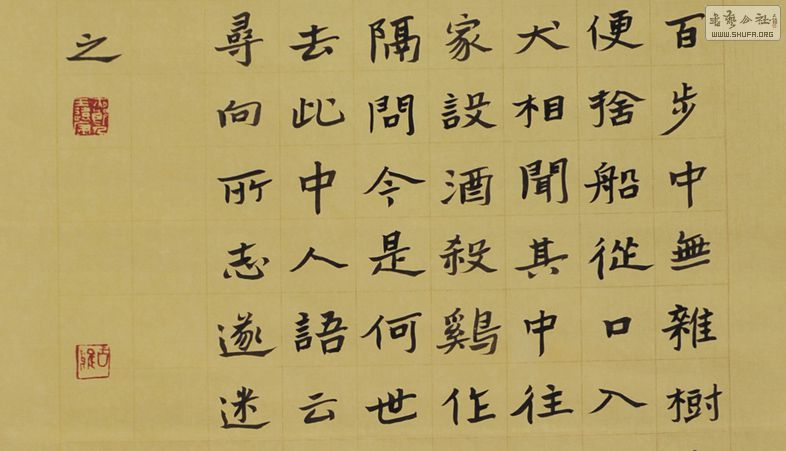 百步中無雜樹
便捨船從口入
犬相聞其中往
家設酒殺鷄作
隔問今是何世
去此中人語云
尋向所志遂迷
之
WWW.SHUFA.ORG